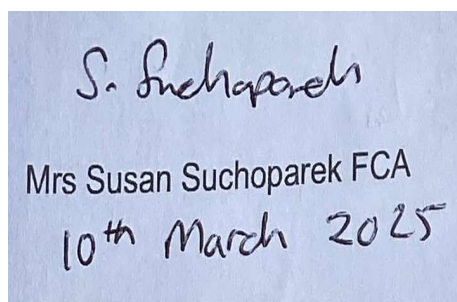 S. Suchoparek
Mrs Susan Suchoparek FCA
10th March 2025